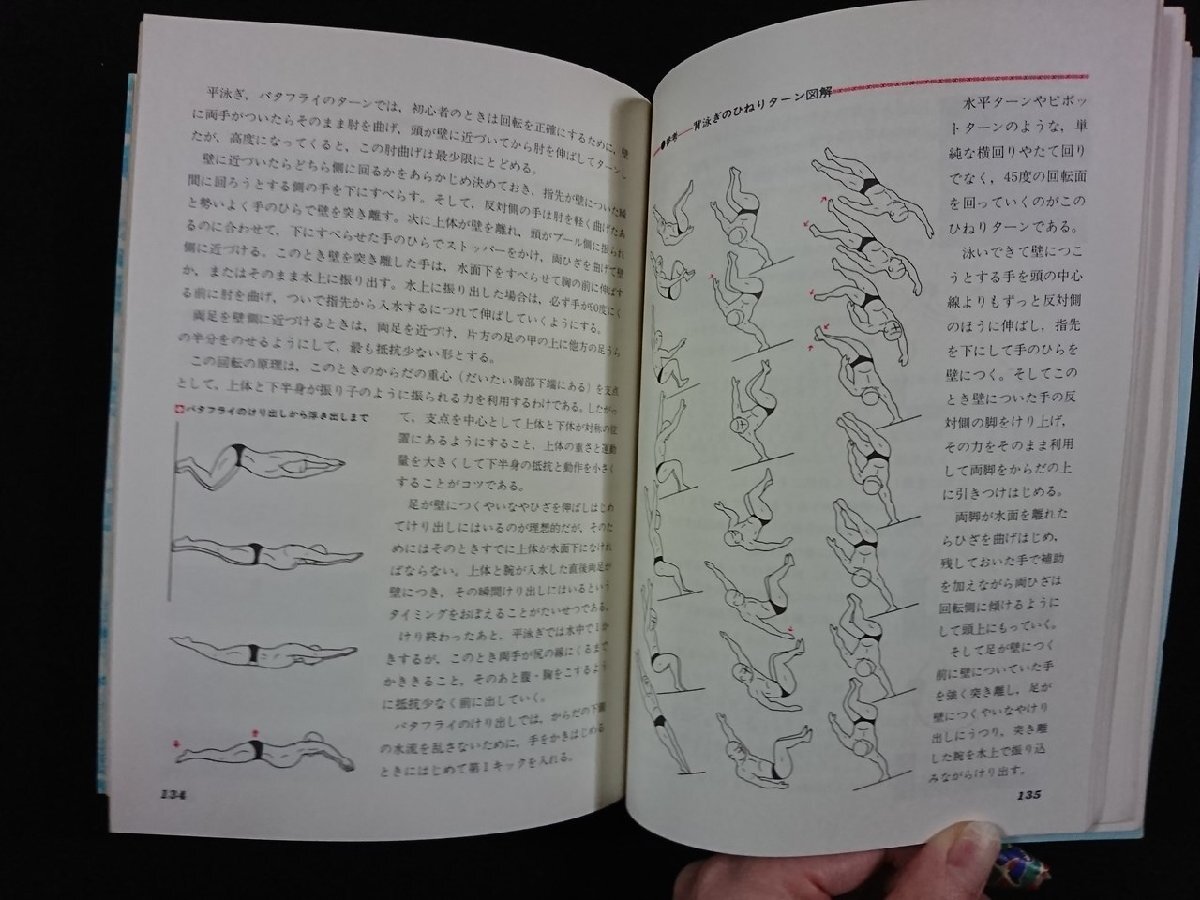 平泳ぎ，バタフライのターンでは，初心者のときは回転を正確にするために，壁
に両手がついたらそのまま肘を曲げ，頭が壁に近づいてから肘を伸ばしてターンし
たが，高度になってくると，この肘曲げは最少限にとどめる。
壁に近づいたらどちら側に回るかをあらかじめ決めておき，指先が壁についた瞬
間に回ろうとする側の手を下にすべらす。そして，反対側の手は肘を軽く曲げたあ
と勢いよく手のひらで壁を突き離す。次に上体が壁を離れ，頭がプール側に振られ
るのに合わせて，下にすべらせた手のひらでストッパーをかけ，両ひざを曲げて壁
側に近づける。このとき壁を突き離した手は，水面下をすべらせて胸の前に伸ばす
か，またはそのまま水上に振り出す。水上に振り出した場合は，必ず手が90度にく
る前に肘を曲げ，ついで指先から入水するにつれて伸ばしていくようにする。
両足を壁側に近づけるときは，両足を近づけ，片方の足の甲の上に他方の足うら
の半分をのせるようにして，最も抵抗少ない形とする。
この回転の原理は，このときのからだの重心（だいたい胸部下端にある）を支点
として，上体と下半身が振り子のように振られる力を利用するわけである。したがっ
て，支点を中心として上体と下体が対称の位
置にあるようにすること，上体の重さと運動
量を大きくして下半身の抵抗と動作を小さく
することがコツである。
足が壁につくやいなやひざを伸ばしはじめ
てけり出しにはいるのが理想的だが，そのた
めにはそのときすでに上体が水面下になけれ
ばならない。上体と腕が入水した直後両足が
壁につき，その瞬間けり出しにはいるという
タイミングをおぼえることがたいせつである。
けり終わったあと，平泳ぎでは水中で1か
きするが，このとき両手が尻の線にくるまで
かききること，そのあと腹・胸をこするよう
に抵抗少なく前に出していく。
バタフライのけり出しでは，からだの下面
の水流を乱さないために，手をかきはじめる
ときにはじめて第1キックを入れる。
バタフライのけり出しから浮き出しまで
134
●参考 背泳ぎのひねりターン図解
水平ターンやピボッ
トターンのような，単
純な横回りやたて回り
でなく，45度の回転面
を回っていくのがこの
ひねりターンである。
泳いできて壁につこ
うとする手を頭の中心
線よりもずっと反対側
のほうに伸ばし，指先
を下にして手のひらを
壁につく。そしてこの
とき壁についた手の反
対側の脚をけり上げ，
その力をそのまま利用
して両脚をからだの上
に引きつけはじめる。
両脚が水面を離れた
らひざを曲げはじめ，
残しておいた手で補助
を加えながら両ひざは
回転側に傾けるように
して頭上にもっていく。
そして足が壁につく
前に壁についていた手
を強く突き離し，足が
壁につくやいなやけり
出しにうつり，突き離
した腕を水上で振り込
みながらけり出す。
135